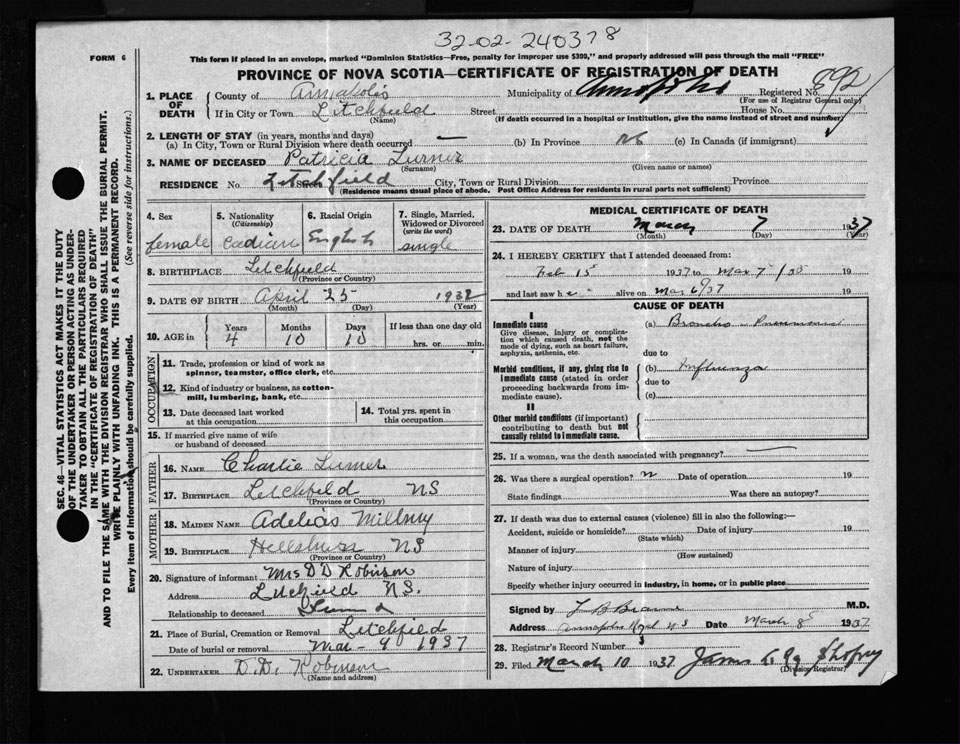 32-02-240378
FORM 6
This form if placed in an envelope, marked "Dominion Statistics—Free, penalty for improper use $300," and properly addressed will pass through the mail "FREE"
PROVINCE OF NOVA SCOTIA—CERTIFICATE OF REGISTRATION OF DEATH
1. PLACE OF DEATH
County of Annapolis Municipality of Annapolis Registered No. 892
(For use of Registrar General only)
If in City or Town Litchfield Street House No.
(Name) (If death occurred in a hospital or institution, give the name instead of street and number)
2. LENGTH OF STAY (in years, months and days)
(a) In City, Town or Rural Division where death occurred — (b) In Province NS (c) In Canada (if immigrant)
3. NAME OF DECEASED Patricia Turner
(Surname) (Given name or names)
RESIDENCE No. Litchfield Street City, Town or Rural Division Province
(Residence means usual place of abode. Post Office Address for residents in rural parts not sufficient)
4. Sex
female
5. Nationality
(Citizenship)
6. Racial Origin
English
7. Single, Married, Widowed or Divorced
(write the word)
single
8. BIRTHPLACE Litchfield
(Province or Country)
9. DATE OF BIRTH April 25 1932
(Month) (Day) (Year)
10. AGE in Years Months Days If less than one day old
4 10 10 hrs. or min.
OCCUPATION
11. Trade, profession or kind of work as spinner, teamster, office clerk, etc.
12. Kind of industry or business, as cotton-mill, lumbering, bank, etc.
13. Date deceased last worked at this occupation
14. Total yrs. spent in this occupation
15. If married give name of wife or husband of deceased
FATHER
16. NAME Charlie Turner
17. BIRTHPLACE Litchfield NS
(Province or Country)
MOTHER
18. MAIDEN NAME
19. BIRTHPLACE NS
(Province or Country)
20. Signature of informant Mrs D D Robinson
Address Litchfield N.S.
Relationship to deceased
21. Place of Burial, Cremation or Removal Litchfield
Date of burial or removal Mar - 9 1937
22. UNDERTAKER D.D. Robinson
(Name and address)
MEDICAL CERTIFICATE OF DEATH
23. DATE OF DEATH March 7 1937
(Month) (Day) (Year)
24. I HEREBY CERTIFY that I attended deceased from:
Feb 15 1937 to Mar 7 19
and last saw h e alive on Mar 6/37 19
CAUSE OF DEATH
I
Immediate cause
Give disease, injury or complication which caused death, not the mode of dying, such as heart failure, asphyxia, asthenia, etc.
(a) Broncho Pneumonia
due to
Morbid conditions, if any, giving rise to immediate cause (stated in order proceeding backwards from immediate cause).
(b) Influenza
due to
(c)
II
Other morbid conditions (if important) contributing to death but not causally related to immediate cause.
25. If a woman, was the death associated with pregnancy? —
26. Was there a surgical operation? n Date of operation 19
State findings Was there an autopsy?
27. If death was due to external causes (violence) fill in also the following:—
Accident, suicide or homicide? Date of injury 19
(State which)
Manner of injury
(How sustained)
Nature of injury
Specify whether injury occurred in industry, in home, or in public place
Signed by M.D.
Address Annapolis Royal N S Date March 8 1937
28. Registrar's Record Number 3
29. Filed March 10 1937
(Division Registrar)
SEC. 46—VITAL STATISTICS ACT MAKES IT THE DUTY
OF THE UNDERTAKER OR PERSON ACTING AS UNDER-
TAKER TO OBTAIN ALL THE PARTICULARS REQUIRED
IN THE "CERTIFICATE OF REGISTRATION OF DEATH"
AND TO FILE THE SAME WITH THE DIVISION REGISTRAR WHO SHALL ISSUE THE BURIAL PERMIT.
WRITE PLAINLY WITH UNFADING INK. THIS IS A PERMANENT RECORD.
Every item of information should be carefully supplied. (See reverse side for instructions.)